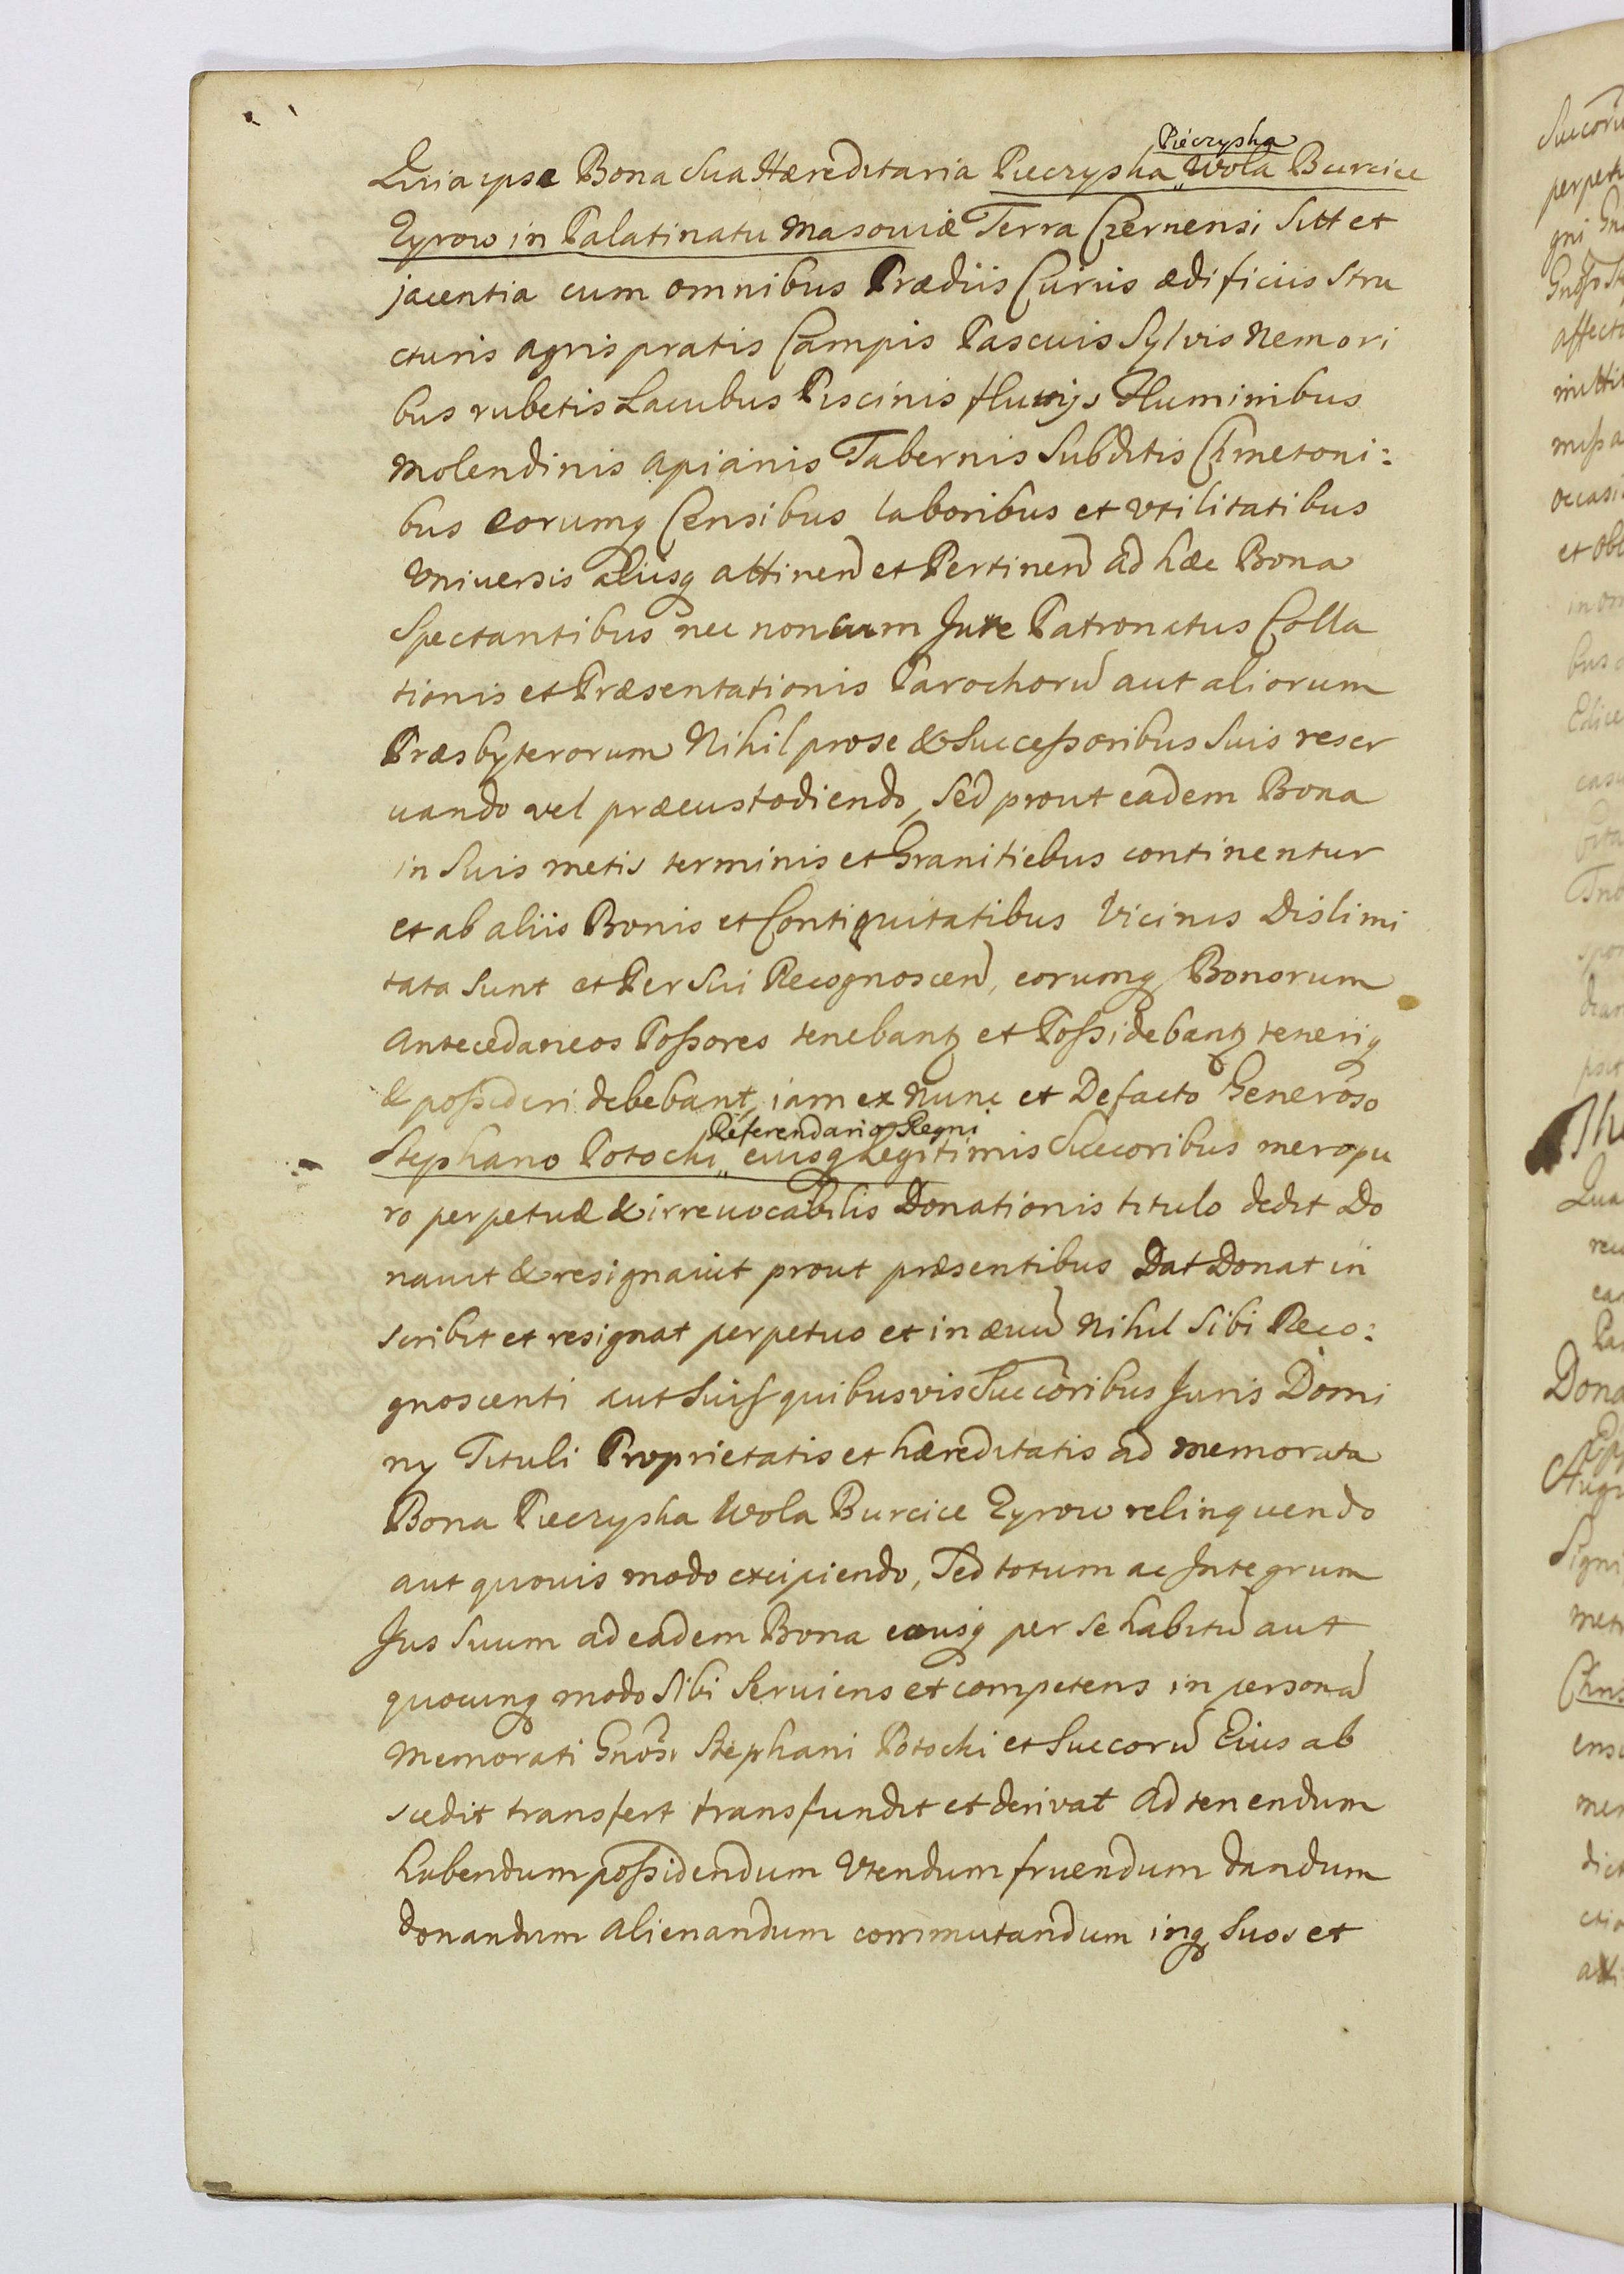 Pieczyska
Quia ipse Bona sua Hæreditaria Pieczyska „ Wola Burcice
Zyrow in Palatinatu Masoviæ Terra Czernensi Sitt et
jacentia cum omnibus Prædiis Curiis ædificiis Stru
cturis agris pratis Campis Pascuis Sylvis Nemori
bus rubetis Lacubus Piscinis fluvijs Fluminibus
Molendinis apianis Tabernis Subditis Cmetoni:
bus eorumq Censibus laboribus et Vtilitatibus
Vniuersis aliisq attinen et Pertinen ad hæc Bona
Spectantibus nec non cum Jure Patronatus Colla
tionis et Præsentationis Parochorũ aut aliorum
Præsbyterorum Nihil pro se & Successoribus Suis reser
uando vel præcustodiendo, Sed prout eadem Bona
in Suis metis terminis et Granitiebus continentur
et ab aliis Bonis et Contiguitatibus Vicinis Dislimi
tata Sunt et Per Sui Recognoscen, eorumq Bonorum
Antecedaneos Possores tenebantʒ et Possidebantʒ teneriq
& possideri debebant, iam ex Nunc et Defacto Generoso
Referendario Regni
Stephano Potocki „ eiusq Legitimis Succoribus mero pu
ro perpetuæ & irreuocabilis Donationis titulo dedit Do
nauit & resignauit prout præsentibus Dat Donat in
scribit et resignat perpetuo et in æuũ Nihil Sibi Reco:
gnoscenti aut Suis quibusvis Succoribus Juris Domi
ny Tituli Proprietatis et hæreditatis ad memorata
Bona Pieczyska Wola Burcice Zyrow relinquendo
aut quouis modo excipiendo, Sed totum ac Integrum
Jus Suum ad eadem Bona eousq per se habitũ aut
quocunq modo Sibi Seruiens et competens in personã
Memorati Gnosi Stephani Potocki et Succorũ Eius ab
scedit transfert transfundit et derivat ad tenendum
habendum possidendum Vtendum fruendum dandum
donandum alienandum commutandum inq Suos et